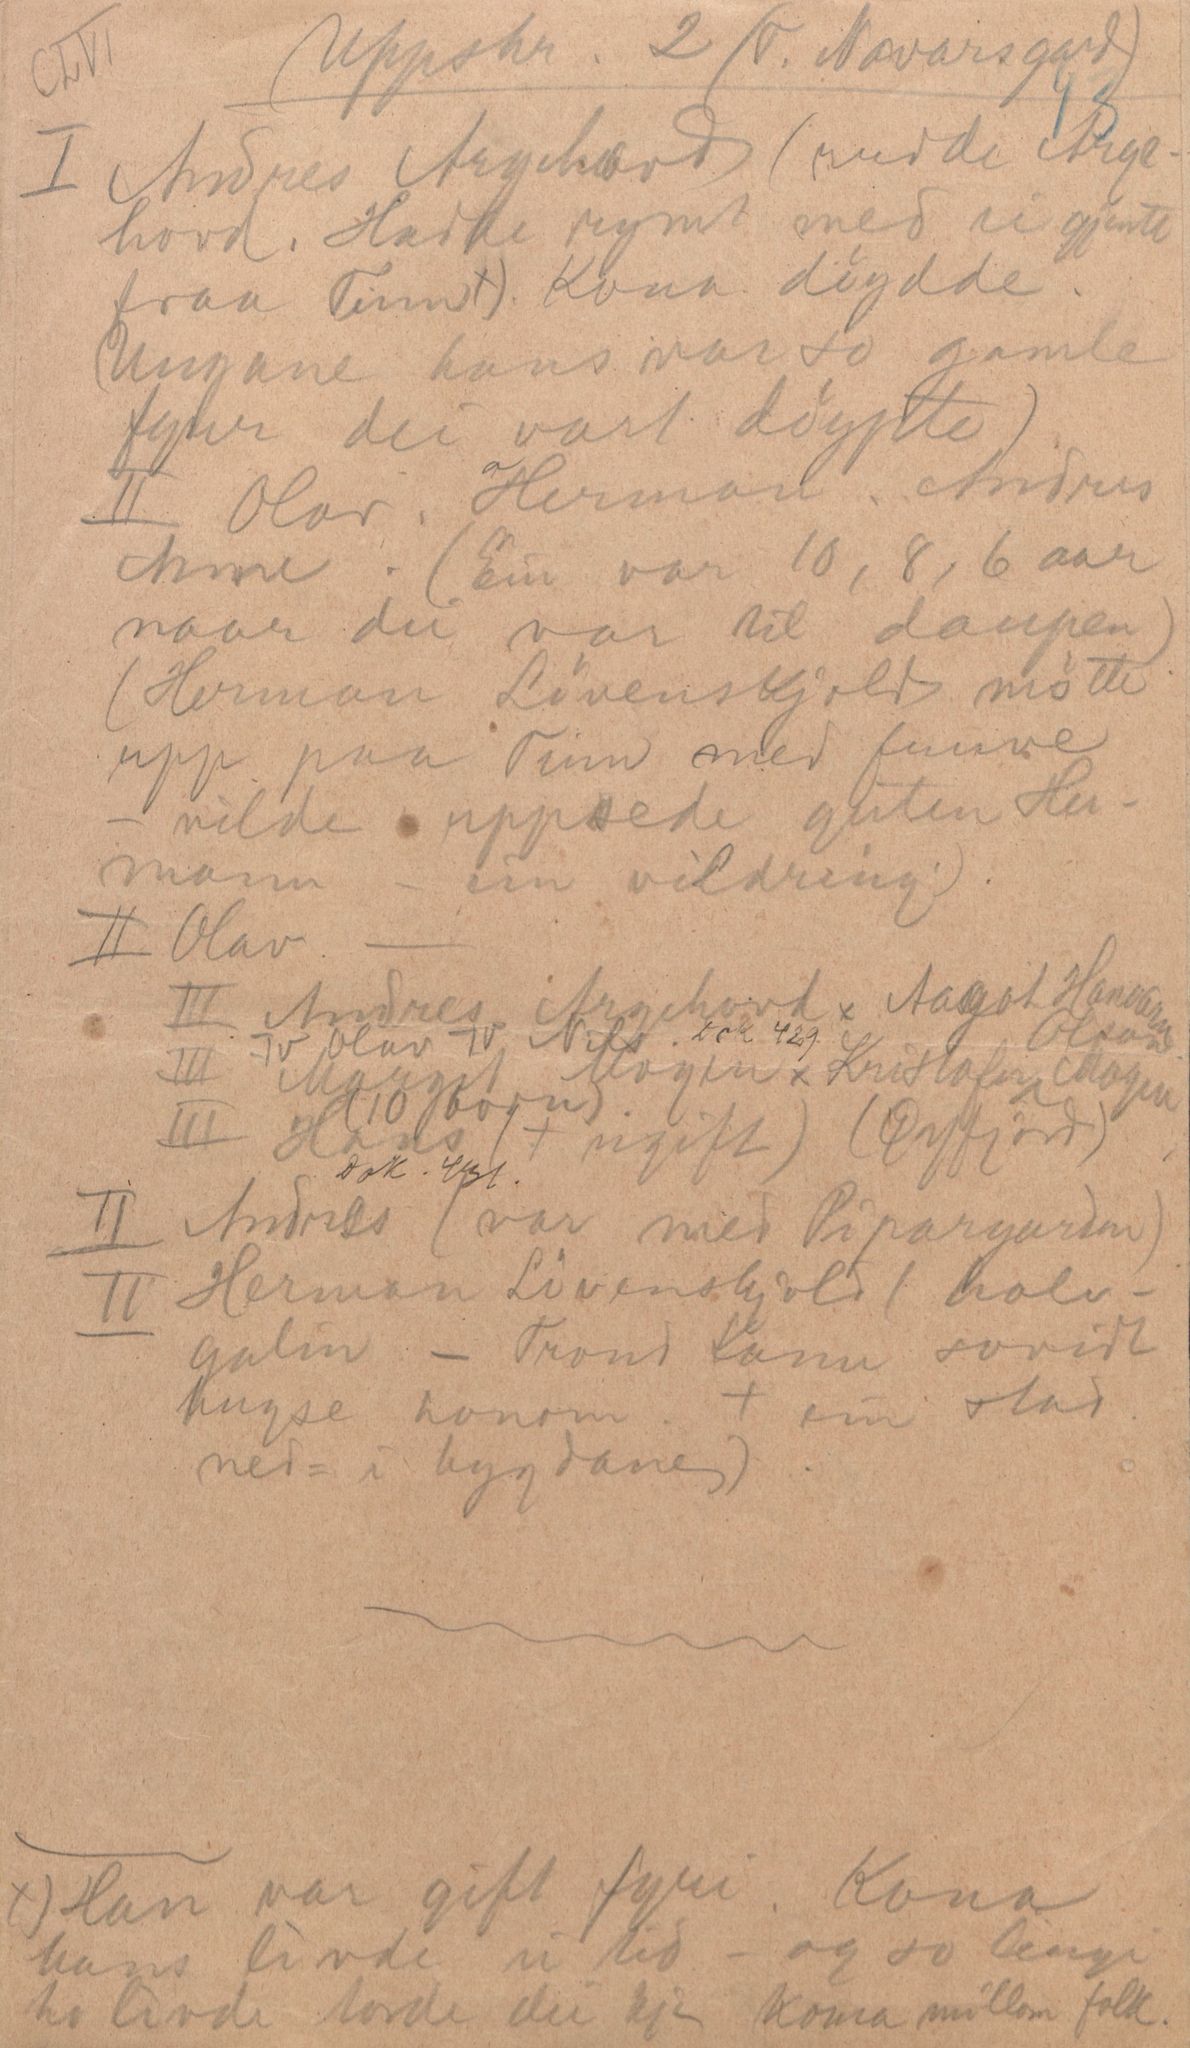 CLVI
Uppskr. 2 (T. Navarsgard)
93
I Andres Argehovd (rudde Arge-
hovd. Hadde rymt med ei gjente
fraa Tinn x). Kona døydde.
(Ungane hans var so gamle
fyrr dei vart døypte)
II Olav. Herman. Andres
Anne. (Ein var 10, 8, 6 aar
naar dei var til daupen)
(Herman Lövenskjold møtte
upp paa Tinn med
– vilde uppsede guten Her-
mann – ein vildring).
II Olav —
III Andres Argehovd x Aagot
IV Olav IV Nils. Dok 429. Olson
III Margit Mogen x Kristofer Mogen
(10 born)
III Hans (+ ugift) (Øyfjord)
Dok. 431.
II Andres (var med Pipargarden)
II Herman Lövenskjold (halv-
galin – Trond sovidt
hugse honom. + ein stad
ned= i bygdane).
x) Han var gift fyri. Kona
hans livde ei tid – og so lengi
ho livde torde dei kje koma millom folk.